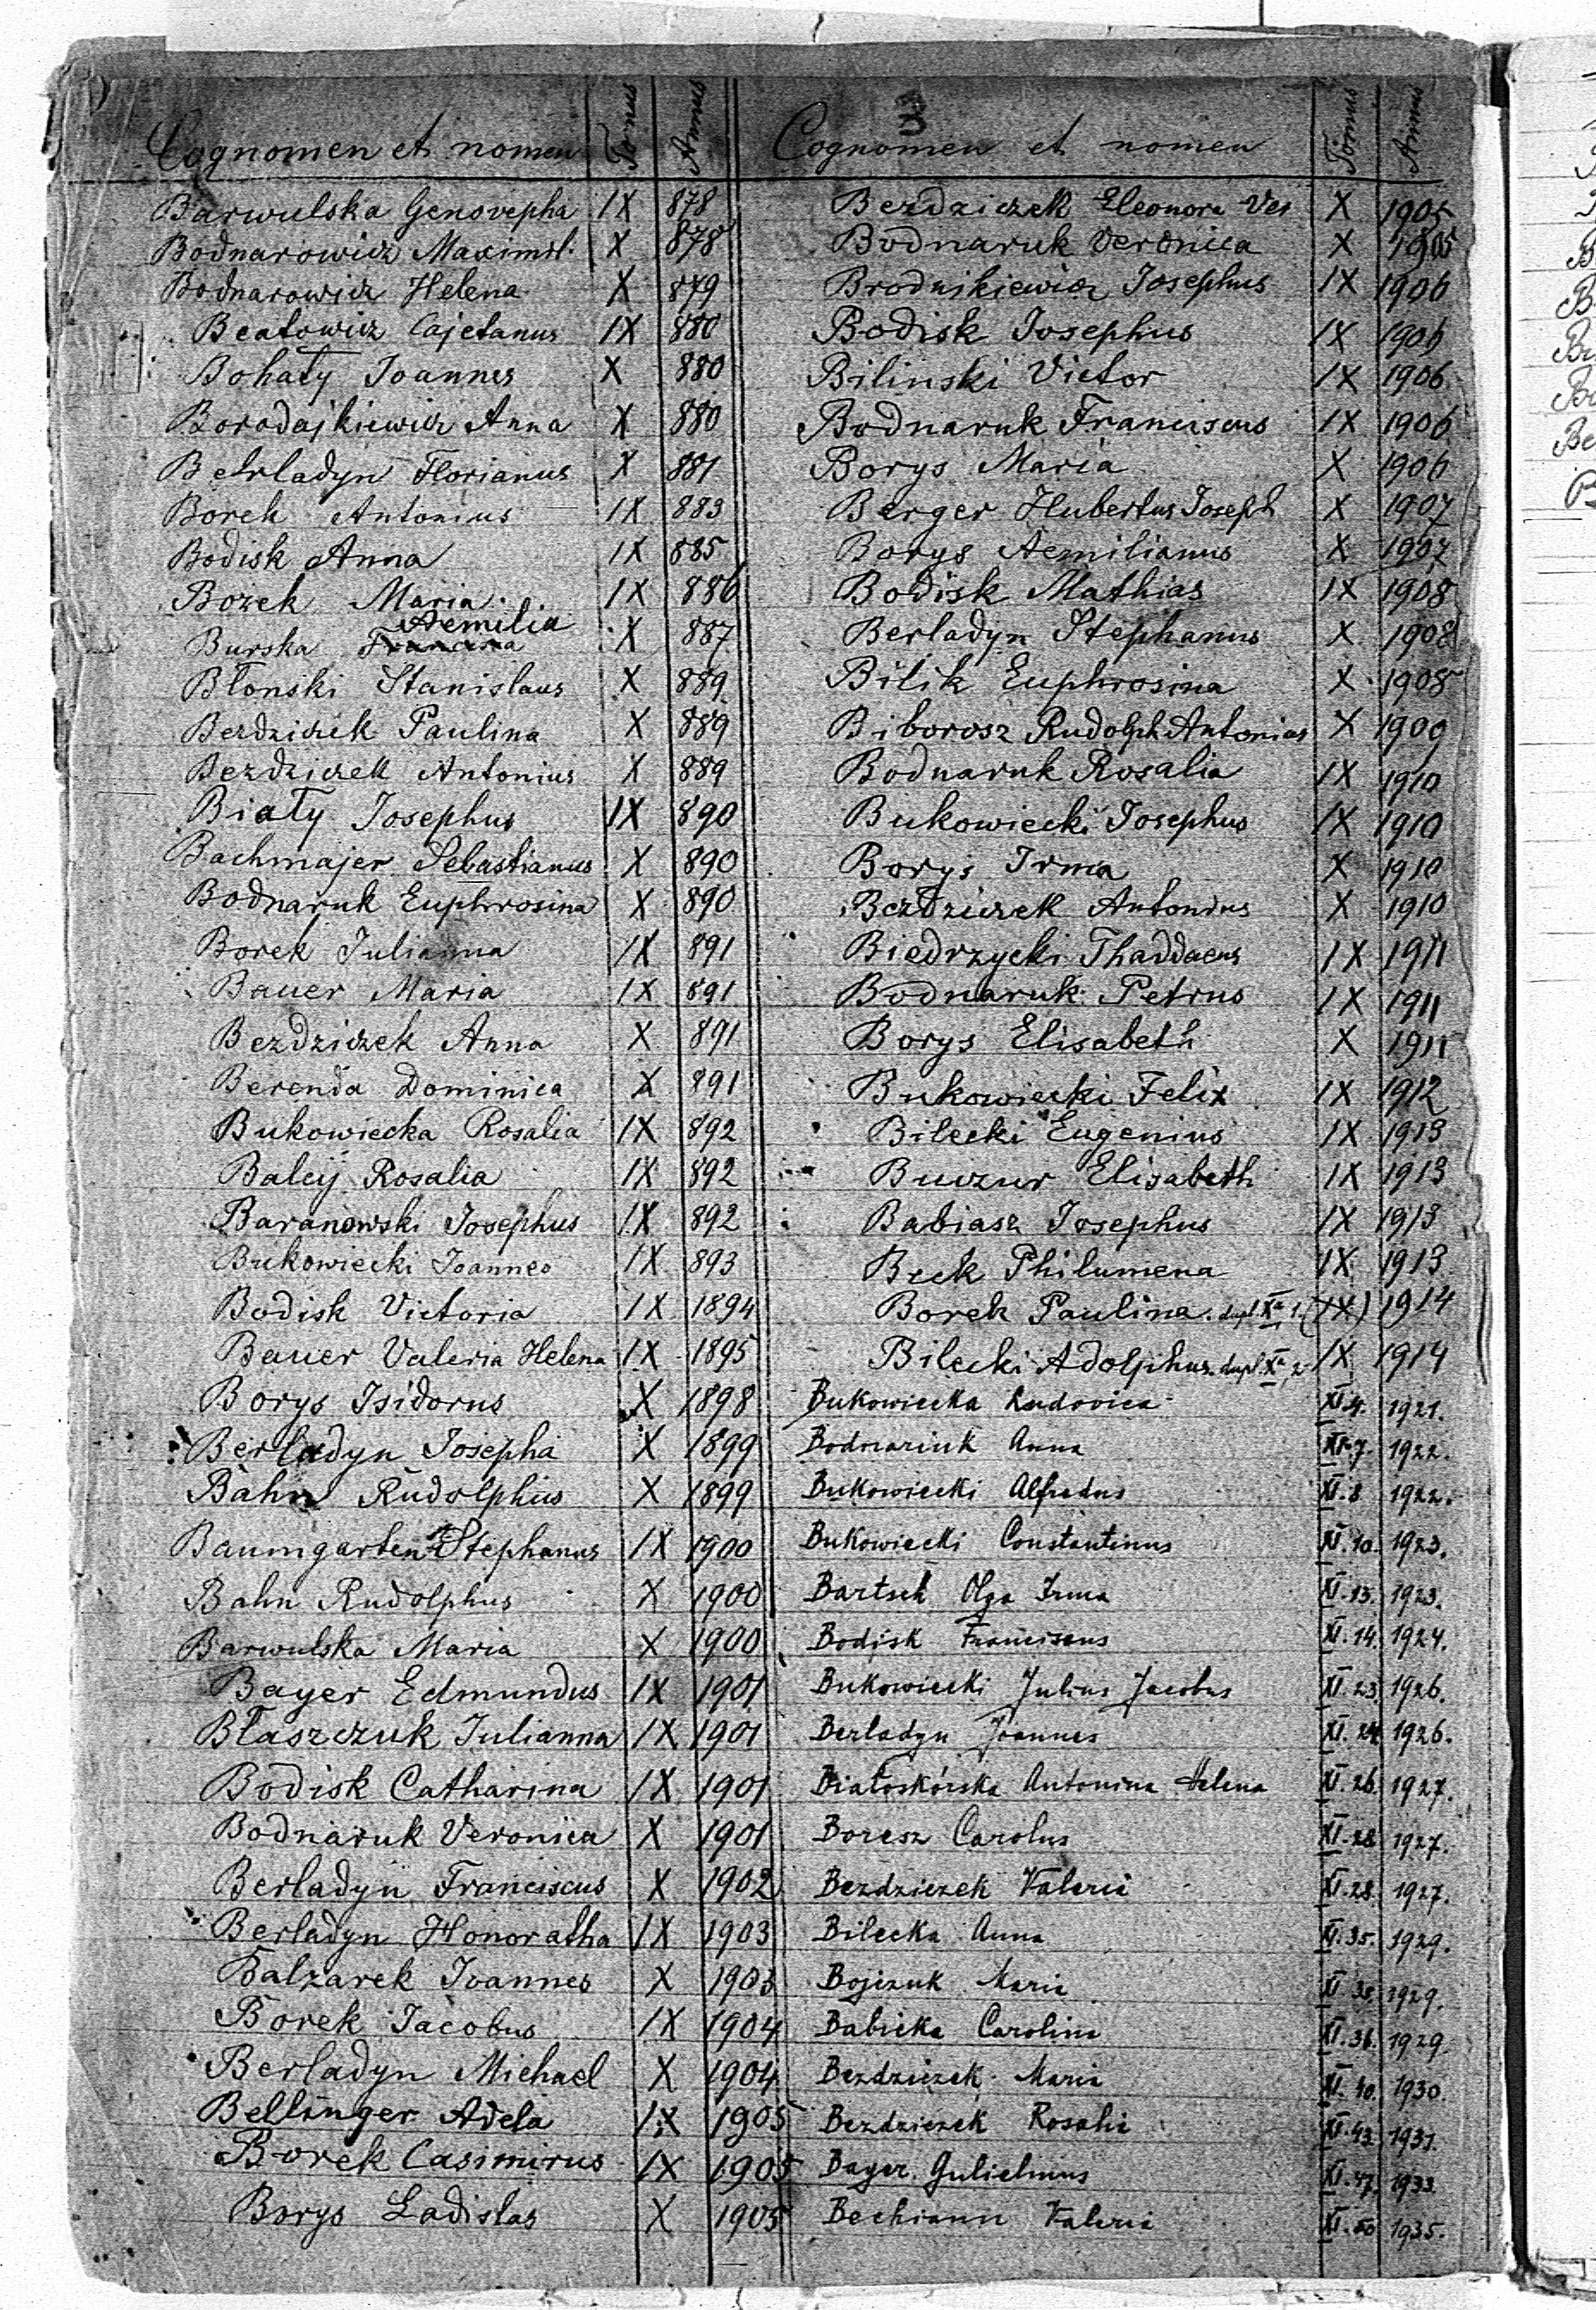 B
Cognomen et nomen Tomus Annus
Barwulska Genovepha IX 878
Bodnarowicz Maximil. X 878
Bodnarowicz Helena X 879
Beatowicz Cajetanus IX 880
Bohaty Joannes X 880
Borodajkiewicz Anna X 880
Berladyn Florianus X 881
Borek Antonius IX 883
Bodisk Anna IX 885
Bozek Maria IX 886
Aemilia
Burska Francisca X 887
Błonski Stanislaus X 889
Bezdziczek Paulina X 889
Bezdziczek Antonius X 889
Biały Josephus IX 890
Bachmajer Sebastianus X 890
Bodnaruk Euphrosina X 890
Borek Julianna IX 891
Bauer Maria IX 891
Bezdziczek Anna X 891
Berenda Dominica X 891
Bukowiecka Rosalia IX 892
Balcij Rosalia IX 892
Baranowski Josephus IX 892
Bukowiecki Joannes IX 893
Bodisk Victoria IX 1894
Bauer Valeria Helena IX 1895
Borys Isidorus X 1898
Berladyn Josepha X 1899
Bahn Rudolphus X 1899
Baumgarten Stephanus IX 1900
Bahn Rudolphus X 1900
Barwulska Maria X 1900
Bayer Edmundus IX 1901
Błaszczuk Julianna IX 1901
Bodisk Catharina IX 1901
Bodnaruk Veronica X 1901
Berladyn Franciscus X 1902
Berladyn Honoratha IX 1903
Balzarek Joannes X 1903
Borek Jacobus IX 1904
Berladyn Michael X 1904
Bellinger Adela IX 1905
Borek Casimirus IX 1905
Borys Ladislas X 1905
Cognomen et nomen Tomus Annus
Bezdziczek Eleonora Ver X 1905
Bodnaruk Veronica X 1905
Brodnikiewicz Josephus IX 1906
Bodisk Josephus IX 1906
Bilinski Victor IX 1906
Bodnaruk Franciscus IX 1906
Borys Maria X 1906
Berger Hubertus Joseph X 1907
Borys Aemilianus X 1907
Bodisk Mathias IX 1908
Berladyn Stephanus X 1908
Bilik Euphrosina X 1908
Biborosz Rudolph Antonius X 1909
Bodnaruk Rosalia IX 1910
Bukowiecki Josephus IX 1910
Borys Irma X 1910
Bezdziczek Antonius X 1910
Biedrzycki Thaddaeus IX 1911
Bodnaruk Petrus IX 1911
Borys Elisabeth X 1911
Bukowiecki Felix IX 1912
Bilecki Eugenius IX 1913
Buczur Elisabeth IX 1913
Babiasz Josephus IX 1913
Beck Philumena IX 1913
Borek Paulina. dupl. XIa 1. (IX) 1914
Bilecki Adolphus. dupl. XIa, 2 IX 1914
Bukowiecka Ludovica XI.4. 1921.
Bodnariuk Anna XI.7. 1922.
Bukowiecki Alfredus XI.8 1922.
Bukowiecki Constantinus XI.10. 1923.
Bartsch Olga Irma XI.13. 1923.
Bodisk Franciscus XI.14. 1924.
Bukowiecki Julius Jacobus XI.23 1926.
Berladyn Joannes XI.24 1926.
Białoskórska Antonina Helena XI.26. 1927.
Boresz Carolus XI.28 1927.
Bezdziczek Valeria XI.28. 1927.
Bilecka Anna XI.35. 1929.
Bojczuk Maria XI.35. 1929.
Babicka Carolina XI.36. 1929.
Bezdziczek Maria XI.40. 1930.
Bezdziczek Rosalia XI.43. 1931.
Bayer Gulielmus XI.47. 1933.
Bechiann Valeria XI.50 1935.